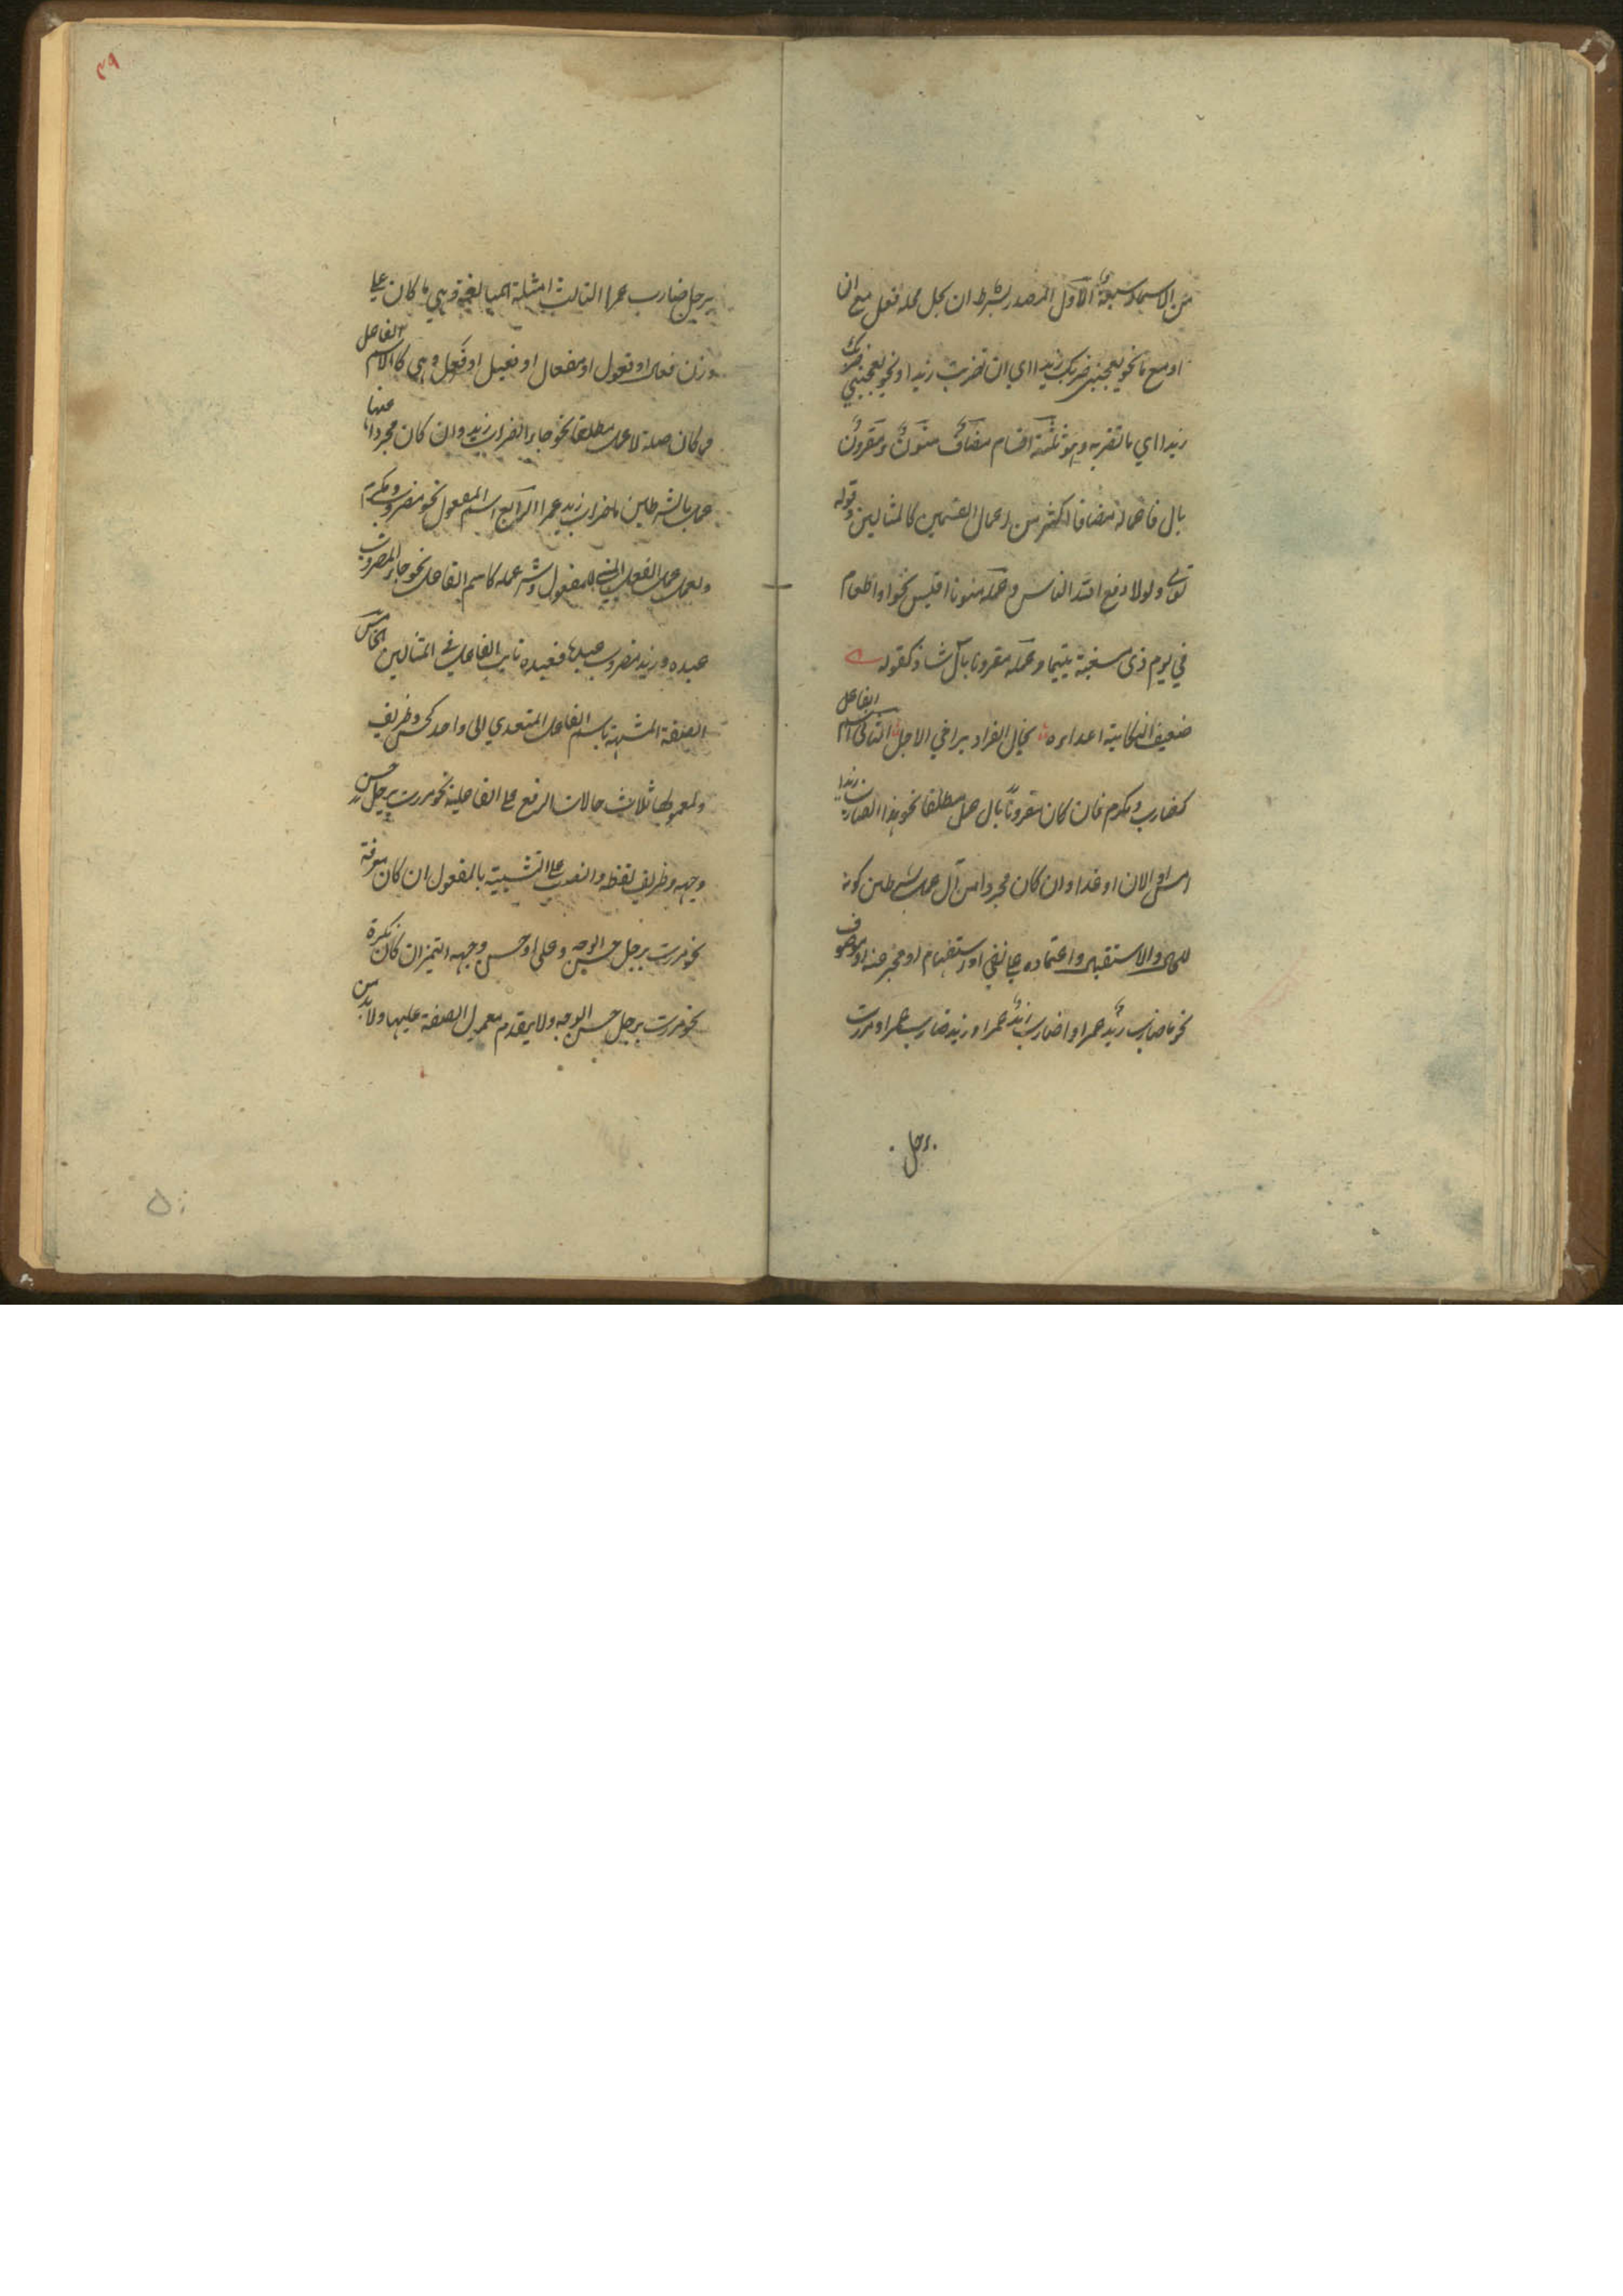 من الاسماء سبعة الاول المصدر بشرط ان يحل محله فعل مع ان
او مع ما نحو يعجبنى ضربك زيدا اي ان تضرب زيدا ونحو يعجبني ضربك
زيدا اي ما تضربه وهو ثلثة اقسام مضاف ومنون ومقرون
بال فاعماله مضافا اكثر من اعمال القسمين كالمثالين وقوله
تعالى ولولا دفع الله الناس وعمله منونا اقيس نحو او اطعام
في يوم ذى مسغبة يتيما وعمله مقرونا بال شاذ كقوله
ضعيف النكاية اعداءه يخال الفرار يراخي الاجل الثانى اسم الفاعل
كضارب ومكرم فان كان مقرونا بال عمل مطلقا نحو هذا الضارب زيدا
امس او الان او غدا وان كان مجردا من ال عمل بشرطين كونه
للحال والاستقبال واعتماده على نفي او استفهام او مخبر عنه او موصوف
نحو ما ضارب زيد عمرا واضارب زيد عمرا وزيد ضارب عمرا ومررت
برجل
٤٩
برجل ضارب عمرا الثالث امثلة المبالغة وهي ما كان على
وزن فعال او فعول او مفعال او فعيل او فعل وهي كالاسم الفاعل
فما كان صلة لال عمل مطلقا نحو جاء الضراب زيدا وان كان مجردا عنها
عمل بالشرطين ما ضراب زيد عمرا الرابع اسم المفعول نحو مضروب ومكرم
ويعمل عمل الفعل المبني للمفعول وشرط عمله كاسم الفاعل نحو جاء المضروب
عبده وزيد مضروب عبده فعبده نايب الفاعل في المثالين الخامس
الصفة المشبهة باسم الفاعل المتعدي الى واحد كحسن وظريف
ولمعمولها ثلاث حالات الرفع على الفاعلية نحو مررت برجل حسن
وجهه وظريف لفظه والنصب على التشبيه بالمفعول ان كان معرفة
نحو مررت برجل حسن الوجه وعلى او حسن وجهه التميز ان كان نكرة
نحو مررت برجل حسن الوجه ولا يتقدم معمول الصفة عليها ولا بد من